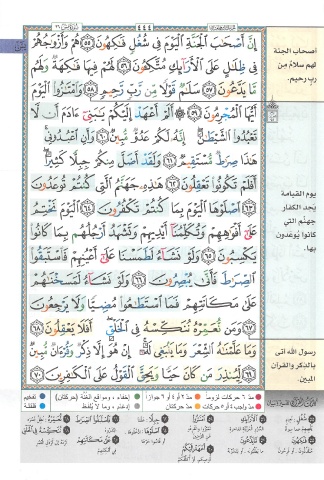 ٤٤٤
إِنَّ أَصْحَٰبَ ٱلْجَنَّةِ ٱلْيَوْمَ فِى شُغُلٍ فَٰكِهُونَ ﴿٥٥﴾ هُمْ وَأَزْوَٰجُهُمْ
فِى ظِلَٰلٍ عَلَى ٱلْأَرَآئِكِ مُتَّكِـُٔونَ ﴿٥٦﴾ لَهُمْ فِيهَا فَٰكِهَةٌ وَلَهُم
مَّا يَدَّعُونَ ﴿٥٧﴾ سَلَٰمٌ قَوْلًا مِّن رَّبٍّ رَّحِيمٍ ﴿٥٨﴾ وَٱمْتَٰزُوا۟ ٱلْيَوْمَ
أَيُّهَا ٱلْمُجْرِمُونَ ﴿٥٩﴾ أَلَمْ أَعْهَدْ إِلَيْكُمْ يَٰبَنِىٓ ءَادَمَ أَن لَّا
تَعْبُدُوا۟ ٱلشَّيْطَٰنَ إِنَّهُۥ لَكُمْ عَدُوٌّ مُّبِينٌ ﴿٦٠﴾ وَأَنِ ٱعْبُدُونِى
هَٰذَا صِرَٰطٌ مُّسْتَقِيمٌ ﴿٦١﴾ وَلَقَدْ أَضَلَّ مِنكُمْ جِبِلًّا كَثِيرًا
أَفَلَمْ تَكُونُوا۟ تَعْقِلُونَ ﴿٦٢﴾ هَٰذِهِۦ جَهَنَّمُ ٱلَّتِى كُنتُمْ تُوعَدُونَ
﴿٦٣﴾ ٱصْلَوْهَا ٱلْيَوْمَ بِمَا كُنتُمْ تَكْفُرُونَ ﴿٦٤﴾ ٱلْيَوْمَ نَخْتِمُ
عَلَىٰٓ أَفْوَٰهِهِمْ وَتُكَلِّمُنَآ أَيْدِيهِمْ وَتَشْهَدُ أَرْجُلُهُم بِمَا كَانُوا۟
يَكْسِبُونَ ﴿٦٥﴾ وَلَوْ نَشَآءُ لَطَمَسْنَا عَلَىٰٓ أَعْيُنِهِمْ فَٱسْتَبَقُوا۟
ٱلصِّرَٰطَ فَأَنَّىٰ يُبْصِرُونَ ﴿٦٦﴾ وَلَوْ نَشَآءُ لَمَسَخْنَٰهُمْ
عَلَىٰ مَكَانَتِهِمْ فَمَا ٱسْتَطَٰعُوا۟ مُضِيًّا وَلَا يَرْجِعُونَ
﴿٦٧﴾ وَمَن نُّعَمِّرْهُ نُنَكِّسْهُ فِى ٱلْخَلْقِ أَفَلَا يَعْقِلُونَ ﴿٦٨﴾
وَمَا عَلَّمْنَٰهُ ٱلشِّعْرَ وَمَا يَنۢبَغِى لَهُۥٓ إِنْ هُوَ إِلَّا ذِكْرٌ وَقُرْءَانٌ مُّبِينٌ
﴿٦٩﴾ لِّيُنذِرَ مَن كَانَ حَيًّا وَيَحِقَّ ٱلْقَوْلُ عَلَى ٱلْكَٰفِرِينَ ﴿٧٠﴾
أصحاب الجنة
لهم سلامٌ من
ربٍ رحيم.
يوم القيامة
يجد الكفار
جهنّم التي
كانوا يُوعَدون
بها.
رسول الله أتى
بالذكر والقرآن
المبين